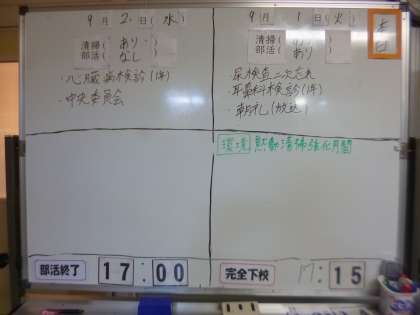 9月 2日(水)
清掃( あり )
部活( なし )
・心臓病検診(1年)
・中央委員会
9月 1日(火)
清掃(
部活( あり )
・尿検査二次忘れ
・耳鼻科検診(1年)
・朝礼(放送)
本日
環境 黙動清掃強化月間
部活終了 17:00
完全下校 17:15